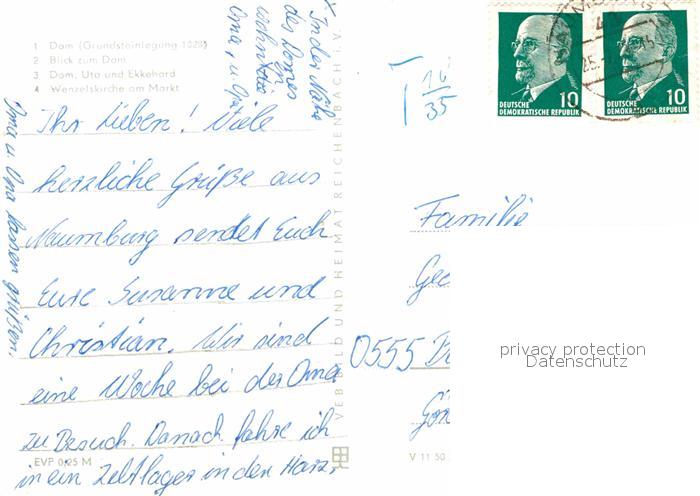 1 Dom (Grundsteinlegung 1028)
2 Blick zum Dom
3 Dom, Uta und Ekkehard
4 Wenzelskirche am Markt
x In der Nähe
des Domes
wohnten
Oma, u. Opa
Ihr Lieben! Viele
herzliche Grüße aus
Naumburg sendet Euch
Eure Susanne und
Christian. Wir sind
eine Woche bei der Oma
zu Besuch. Danach fahre ich
in ein Zeltlager in den Harz.
Oma u. Opa lassen grüßen.
EVP 0,25 M
VEB BILD UND HEIMAT REICHENBACH i. V.
T 16
35
DEUTSCHE
DEMOKRATISCHE REPUBLIK
10
DEUTSCHE
DEMOKRATISCHE REPUBLIK
10
Familie
0555
V 11 50
privacy protection
Datenschutz